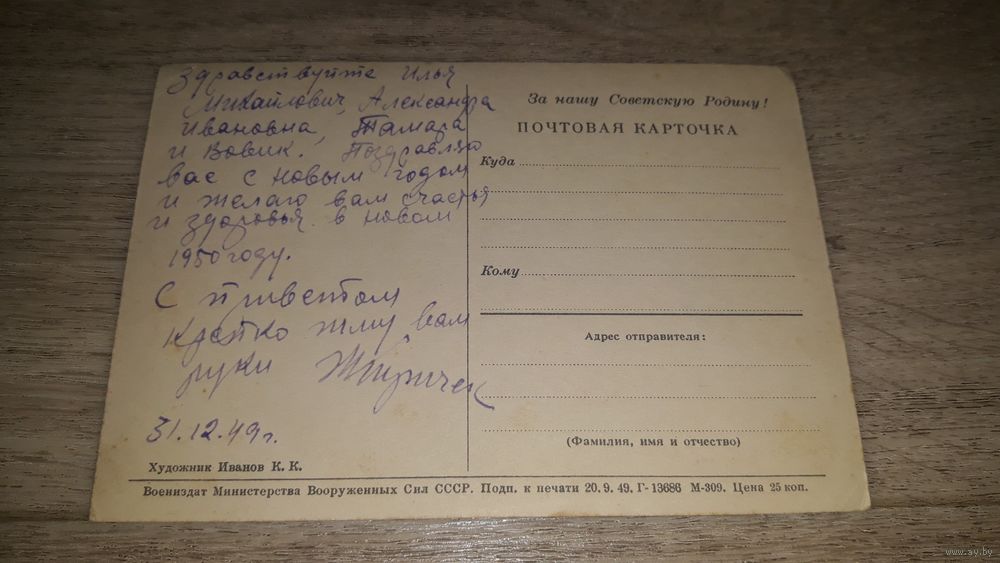 Здравствуйте Илья
Михайлович, Александра
Ивановна, Тамара
и Вовик. Поздравляю
вас с новым годом
и желаю вам счастья
и здоровья в новом
1950 году.
С приветом
крепко жму вам
руки
31.12.49 г.
Художник Иванов К. К.
За нашу Советскую Родину!
ПОЧТОВАЯ КАРТОЧКА
Куда
Кому
Адрес отправителя:
(Фамилия, имя и отчество)
Воениздат Министерства Вооруженных Сил СССР. Подп. к печати 20.9.49. Г-13686 М-309. Цена 25 коп.
www.ay.by